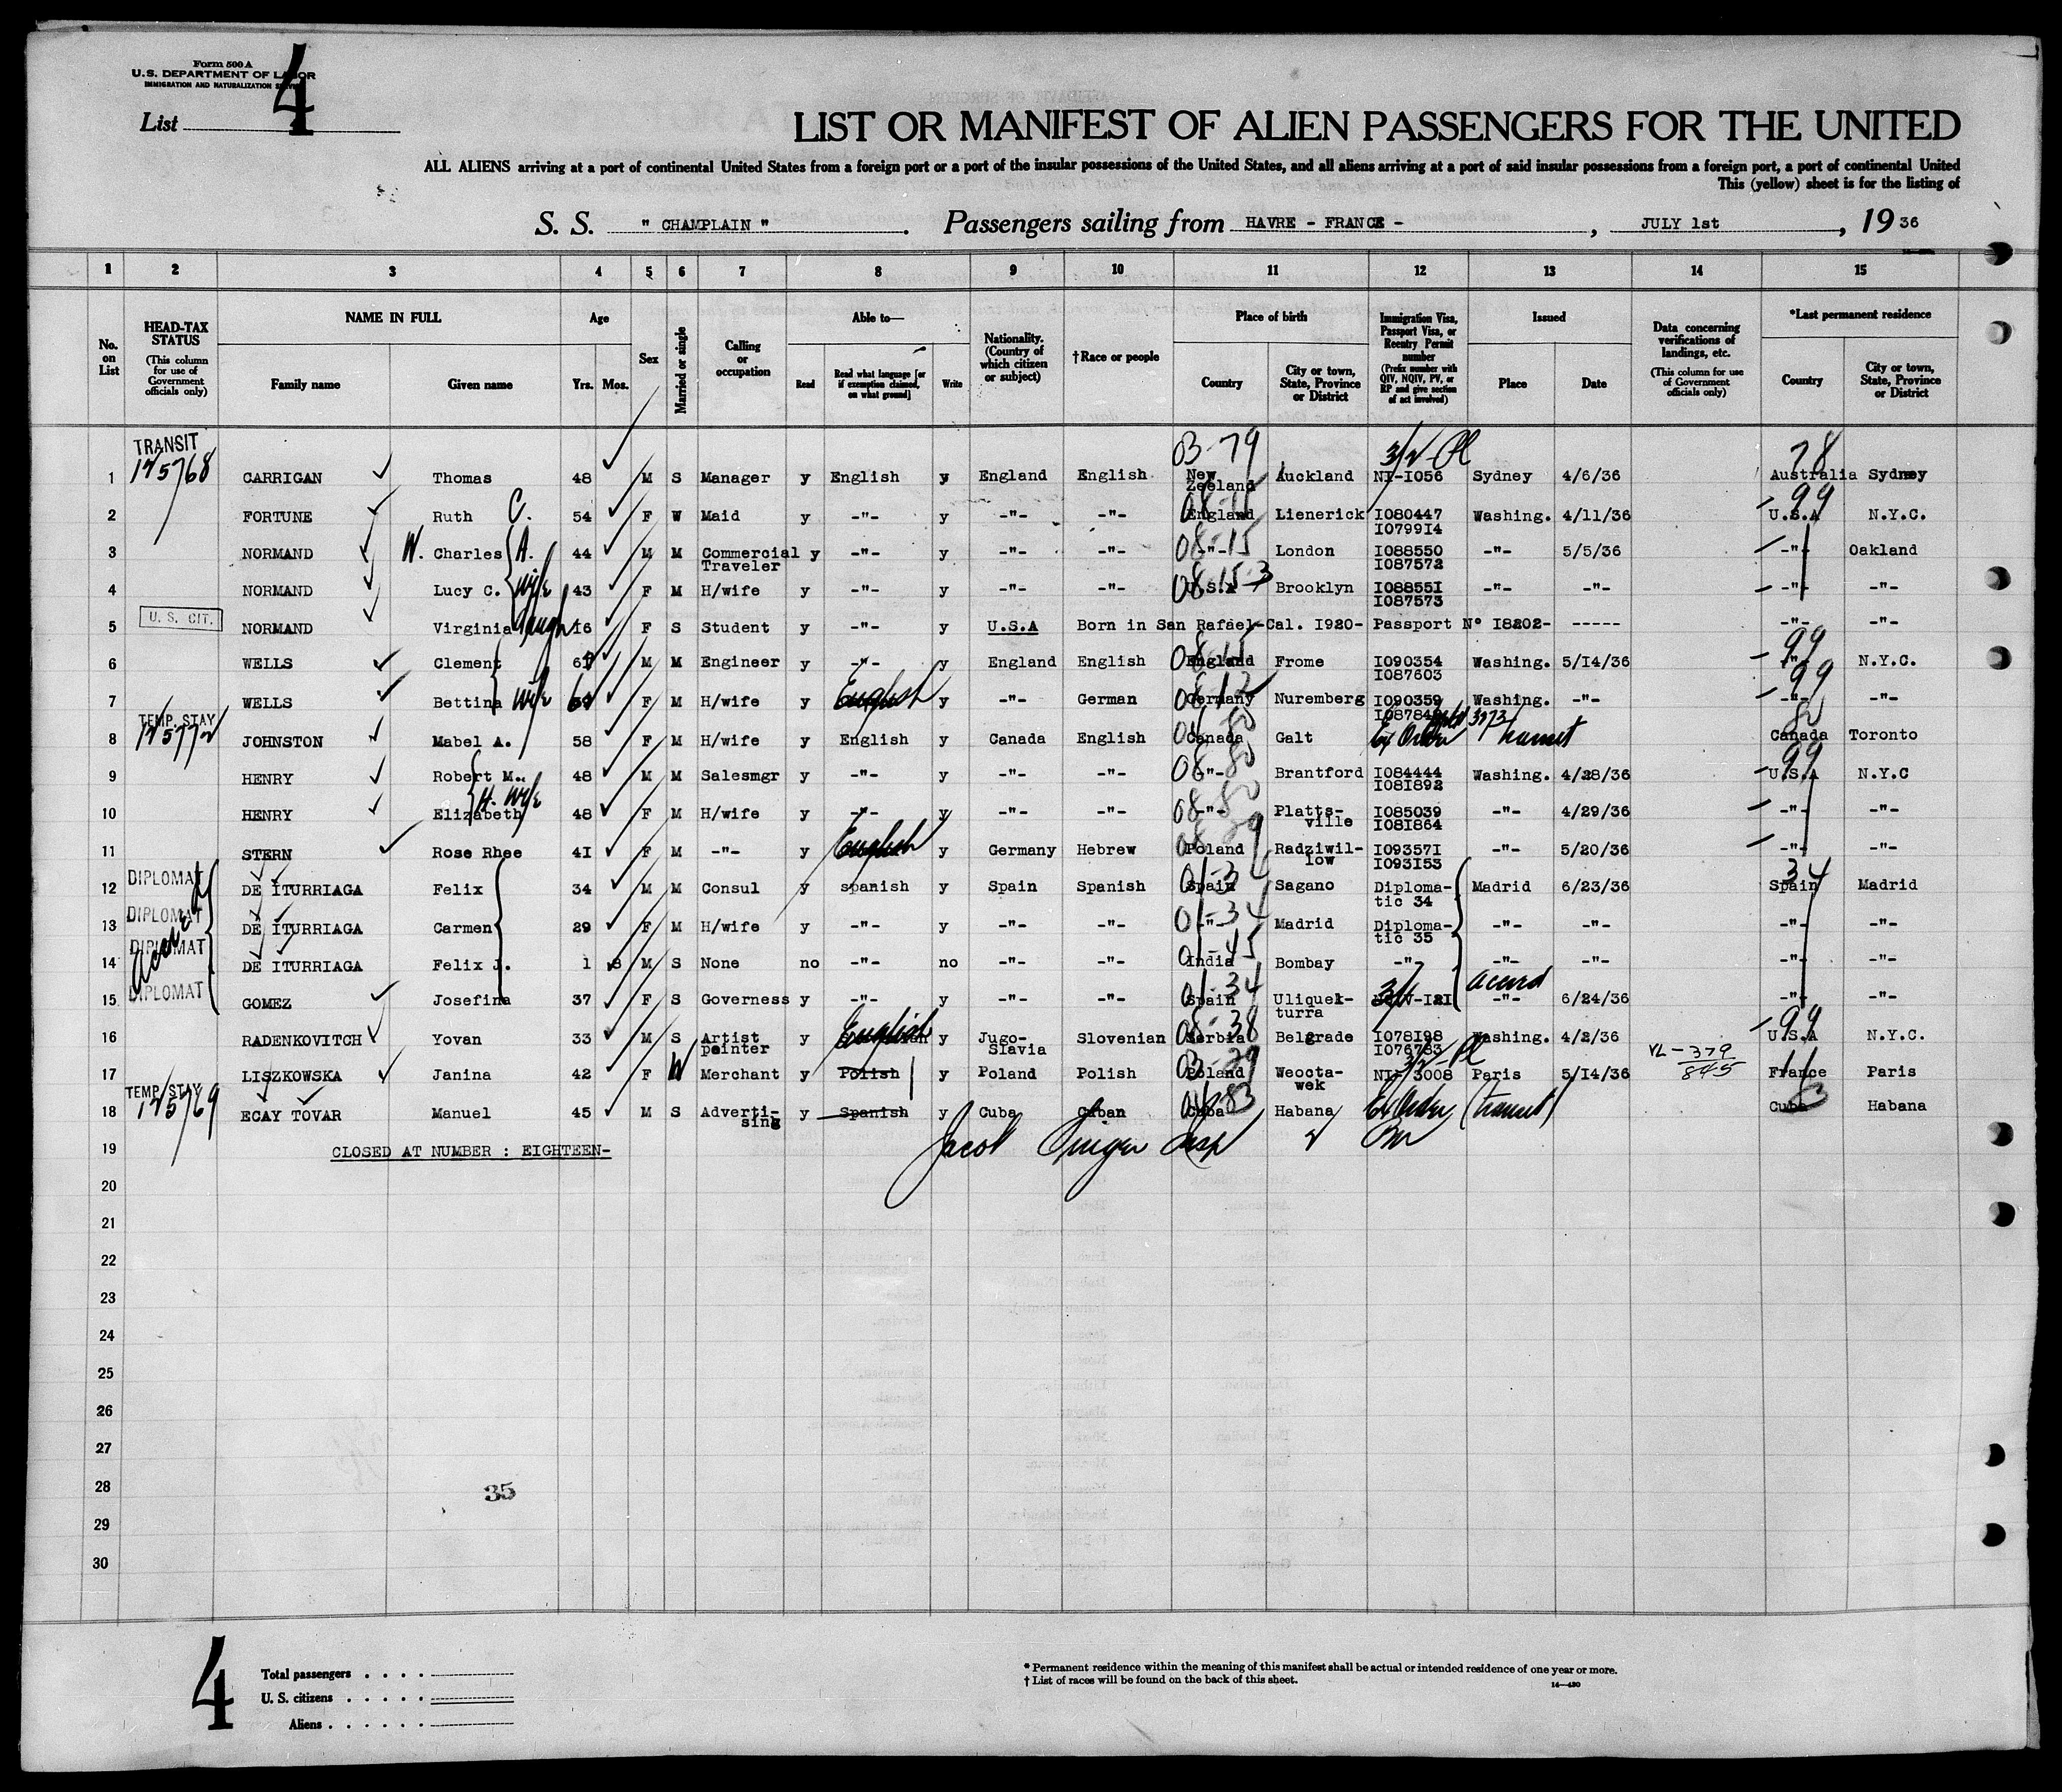 Form 500 A
U.S. DEPARTMENT OF LABOR
IMMIGRATION AND NATURALIZATION
4
List
LIST OR MANIFEST OF ALIEN PASSENGERS FOR THE UNITED
ALL ALIENS arriving at a port of continental United States from a foreign port or a port of the insular possessions of the United States, and all aliens arriving at a port of said insular possessions from a foreign port, a port of continental United
This (yellow) sheet is for the listing of
S. S. " CHAMPLAIN ". Passengers sailing from HAVRE - FRANCE - , JULY 1st , 19 36
1 2 3 4 5 6 7 8 9 10 11 12 13 14 15
No. on List
HEAD-TAX STATUS (This column for use of Government officials only)
NAME IN FULL
Family name Given name
Age
Yrs. Mos.
Sex
Married or single
Calling or occupation
Able to—
Read Read what language [or if exemption claimed, on what ground] Write
Nationality. (Country of which citizen or subject)
†Race or people
Place of birth
Country City or town, State, Province or District
Immigration Visa, Passport Visa, or Reentry Permit number (Prefix number with QIV, NQIV, PV, or RP and give section of act involved)
Issued
Place Date
Data concerning verifications of landings, etc. (This column for use of Government officials only)
*Last permanent residence
Country City or town, State, Province or District
TRANSIT 03-79 3/2 78
1 125768 CARRIGAN Thomas 48 M S Manager y English y England English New Zeeland Auckland NI-I056 Sydney 4/6/36 Australia Sydney
2 FORTUNE Ruth C. 54 F W Maid y -"- y -"- -"- England Lienerick I080447 I0799I4 Washing. 4/11/36 99 U.S.A N.Y.C.
3 NORMAND W. Charles A. 44 M M Commercial Traveler y -"- y -"- -"- 08-15 -"- London I088550 I087572 -"- 5/5/36 -"- Oakland
4 NORMAND Lucy C. wife 43 F M H/wife y -"- y -"- -"- 08-15-3 U.S.A Brooklyn I08855I I087573 -"- -"- -"- -"-
U. S. CIT.
5 NORMAND Virginia daugh 16 F S Student y -"- y U.S.A Born in San Rafael-Cal. I920- Passport N° I8202- ----- -"- -"-
6 WELLS Clement M M Engineer y -"- y England English 08-15 England Frome I090354 I087603 Washing. 5/14/36 99 -"- N.Y.C.
7 WELLS Bettina wife F M H/wife y English y -"- German 08-12 Germany Nuremberg I090359 Washing. -"- 99 -"- -"-
TEMP. STAY
8 JOHNSTON Mabel A. 58 F M H/wife y English y Canada English Canada Galt Ex Order transit 80 Canada Toronto
9 HENRY Robert M.. 48 M M Salesmgr y -"- y -"- -"- 08-80 -"- Brantford I084444 I08I892 Washing. 4/28/36 99 U.S.A N.Y.C
10 HENRY Elizabeth H. wife 48 F M H/wife y -"- y -"- -"- 08-80 -"- Platts-ville I085039 I08I864 -"- 4/29/36 -"- -"-
11 STERN Rose Rhee 4I F M -"- y English y Germany Hebrew Poland Radziwil-low I09357I I093I53 -"- 5/20/36 -"- -"-
DIPLOMAT
12 DE ITURRIAGA Felix 34 M M Consul y spanish y Spain Spanish 01-34 Spain Sagano Diploma-tic 34 Madrid 6/23/36 34 Spain Madrid
DIPLOMAT
13 DE ITURRIAGA Carmen 29 F M H/wife y -"- y -"- -"- 01-34 -"- Madrid Diploma-tic 35 -"- -"- -"- -"-
DIPLOMAT
14 DE ITURRIAGA Felix J. 1 8 M S None no -"- no -"- -"- 01-45 India Bombay -"- -"- -"- -"- -"-
DIPLOMAT
15 GOMEZ Josefina 37 F S Governess y -"- y -"- -"- 01-34 Spain Uliquek-turra -"- 6/24/36 -"- -"-
16 RADENKOVITCH Yovan 33 M S Artist peinter y English y Jugo-Slavia Slovenian 08-38 Serbia Belgrade I078I98 I076783 Washing. 4/2/36 99 U.S.A N.Y.C.
17 LISZKOWSKA Janina 42 F W Merchant y Polish y Poland Polish 03-29 Poland Weocta-wek NI- 3008 Paris 5/14/36 VL-379 845 France Paris
TEMP. STAY
18 125769 ECAY TOVAR Manuel 45 M S Adverti-sing y Spanish y Cuba Cuban Cuba Habana Ex Order (transit) 83 Cuba Habana
19 CLOSED AT NUMBER : EIGHTEEN- Jacob Insp
20
21
22
23
24
25
26
27
28
35
29
30
4
Total passengers
U. S. citizens
Aliens
* Permanent residence within the meaning of this manifest shall be actual or intended residence of one year or more.
† List of races will be found on the back of this sheet.
14—420